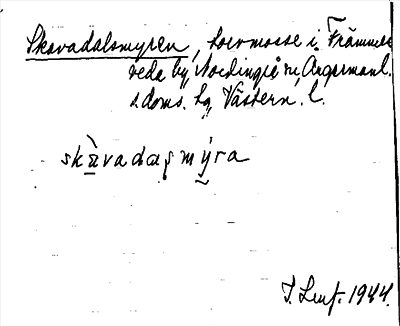 Skavadalsmyren, torvmosse i Främmer-
veda by, Nordingrå sn, Ångermanl.
s doms. hg, Västern. l.
skàvadaʂmýra
J. Lenf. 1944.